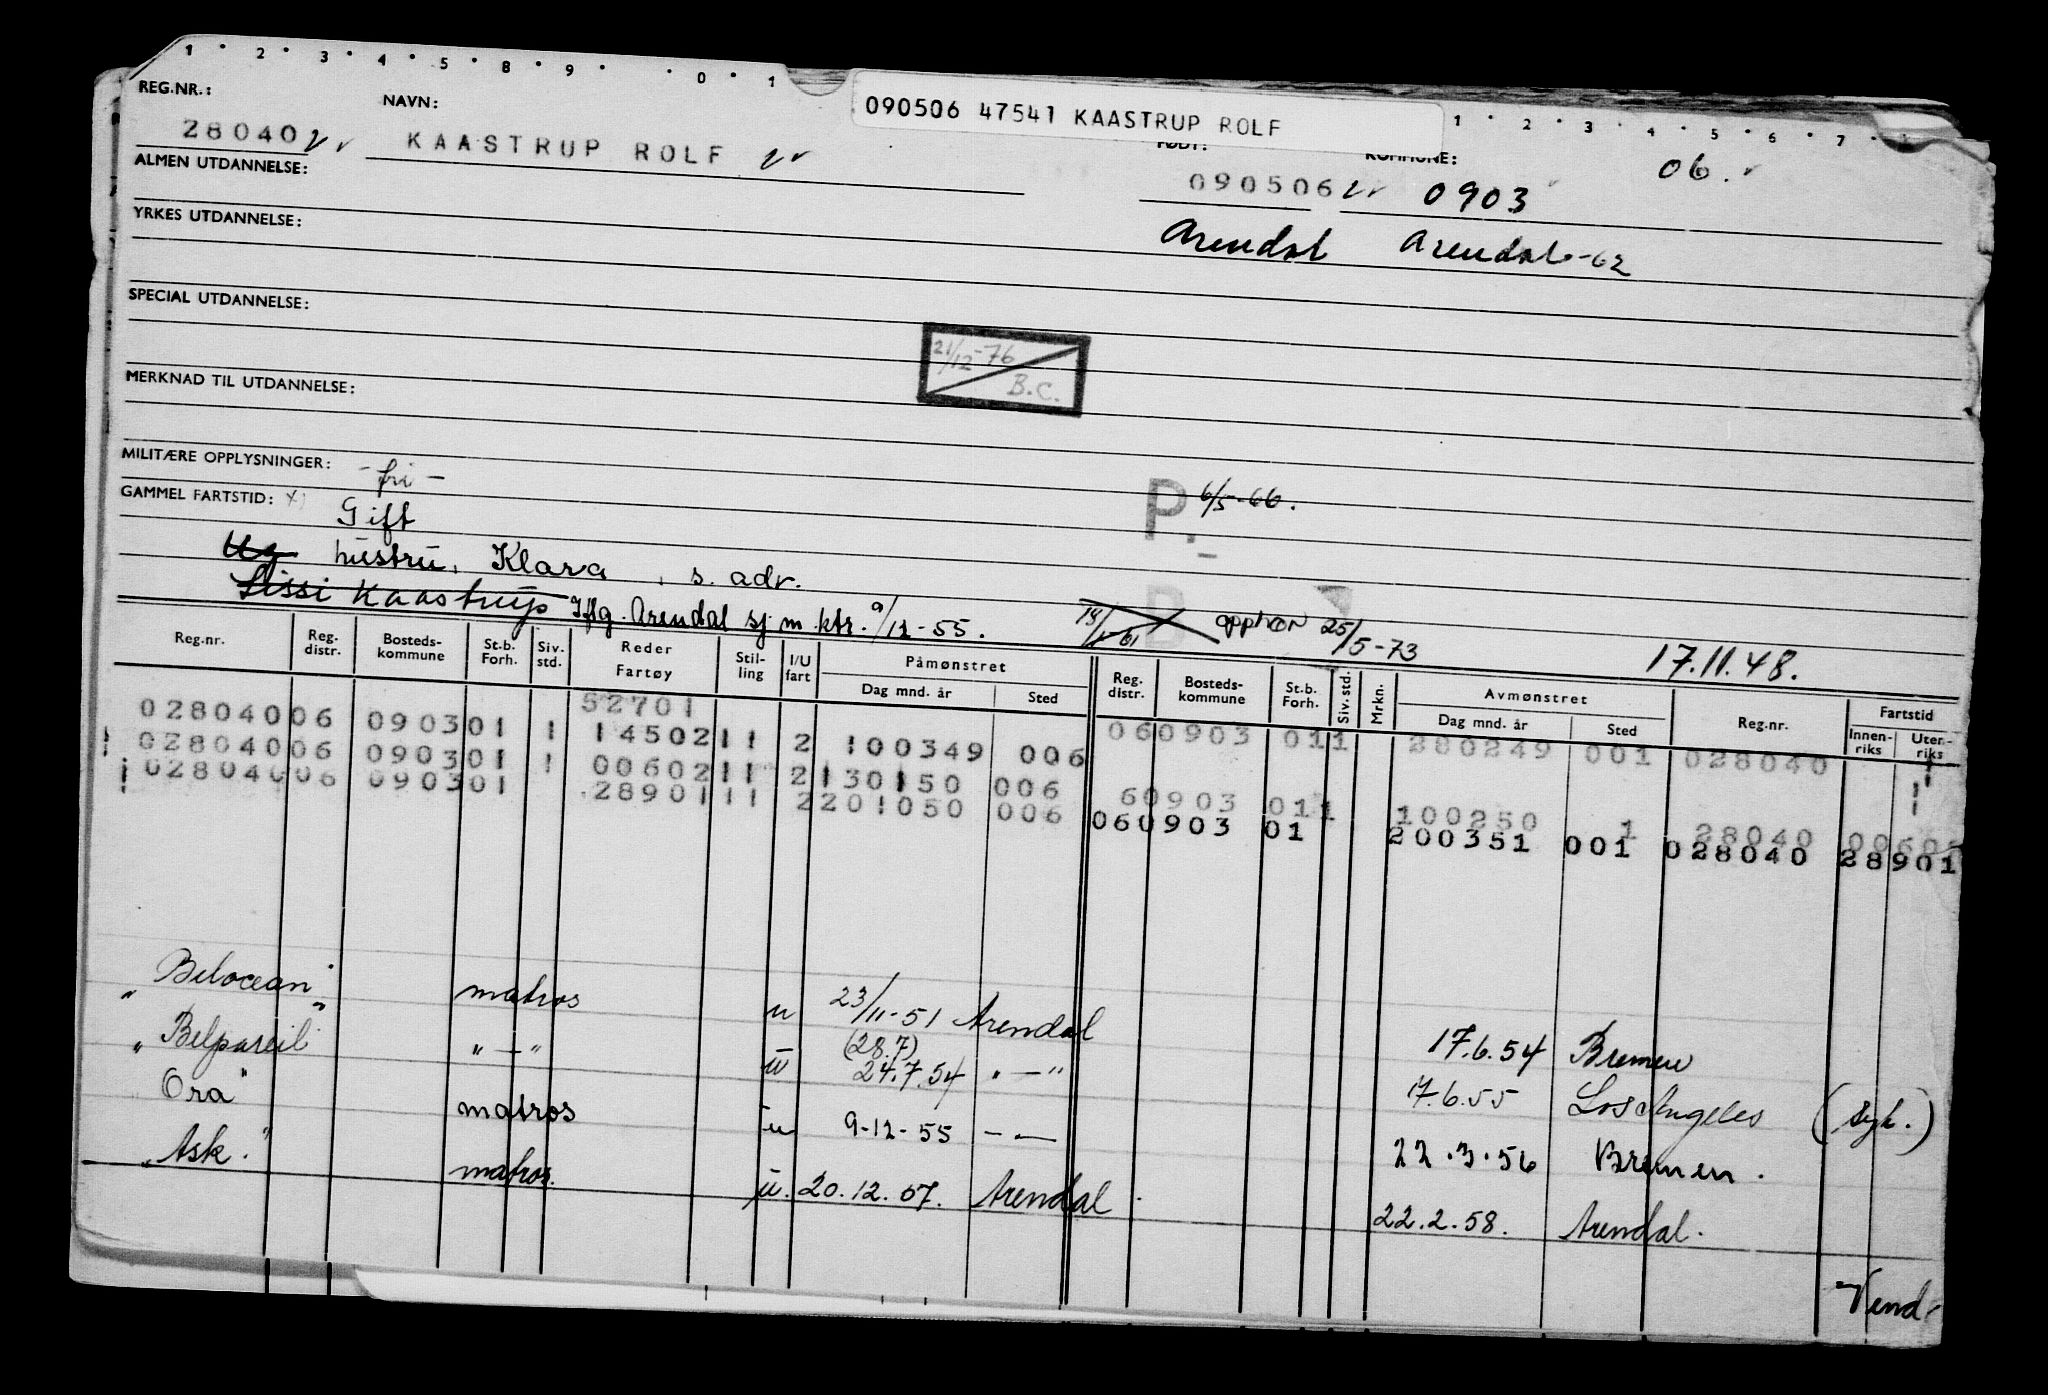 1 2 3 4 5 8 9 0 1
090506 47541 KAASTRUP ROLF
1 2 3 4 5 6 7
REG.NR.: NAVN: FØDT: KOMMUNE:
28040 KAASTRUP ROLF 090506 0903 06.
ALMEN UTDANNELSE:
Arendal Arendal-62
YRKES UTDANNELSE:
SPECIAL UTDANNELSE:
21/12-76 B.C.
MERKNAD TIL UTDANNELSE:
MILITÆRE OPPLYSNINGER: - fri -
GAMMEL FARTSTID: x) Gift P. 6/5-66.
hustru, Klara , s. adr.
Sissi Kaastrup Iflg. Arendal sj.m.ktr. 9/12-55. B opphør 25/5-73 17.11.48.
Reg.nr. Reg. distr. Bosteds-kommune St.b. Forh. Siv. std. Reder Fartøy Stil-ling I/U fart Påmønstret Dag mnd. år Sted Reg. distr. Bosteds-kommune St.b. Forh. Siv. std. Mrkn. Avmønstret Dag mnd. år Sted Reg.nr. Fartstid Innen-riks Uten-riks
52701 060903 011 280249 001 028040
028040 06 0903 01 1 14502 11 2 100349 006
028040 06 0903 01 1 00602 11 2 130150 006 60903 011 100250 1 28040
028040 06 0903 01 28901 11 2 201050 006 060903 01 200351 001 028040 28901
"Belocean" matros u 23/11-51 Arendal 17.6.54 Bremen
"Belpareil" "-" u (28.7) 24.7.54 "-" 17.6.55 Los Angeles (syk.)
"Ora" matros u 9-12-55 - - 22.3.56 Bremen.
"Ask." matros. u. 20.12.57. Arendal. 22.2.58. Arendal.
Vend